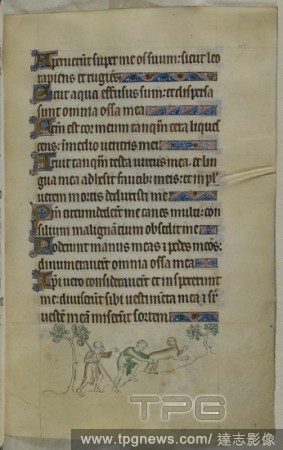 Aperuerūt super me os suum: sicut leo
rapiens et rugiēs.
Sicut aqua effusus sum: et dispersa
sunt omnia ossa mea
est cor meum tanqm̄ cera liques
cens: in medio ventris mei
Aruit tanqm̄ testa virtus mea, et lin
gua mea adhesit faucib' meis: et in pul
verem mortis deduxisti me
Qm̄ circumdederūt me canes multi: con
silium malignātium obsedit me
Foderunt manus meas et pedes meos:
dinumeraverūt omnia ossa mea
Ipsi vero consideraverūt et inspexerunt
me: diviserunt sibi vestimēta mea et sr̄
vestē meā miserūt sortem
TPG
www.tpgnews.com/ 達志影像